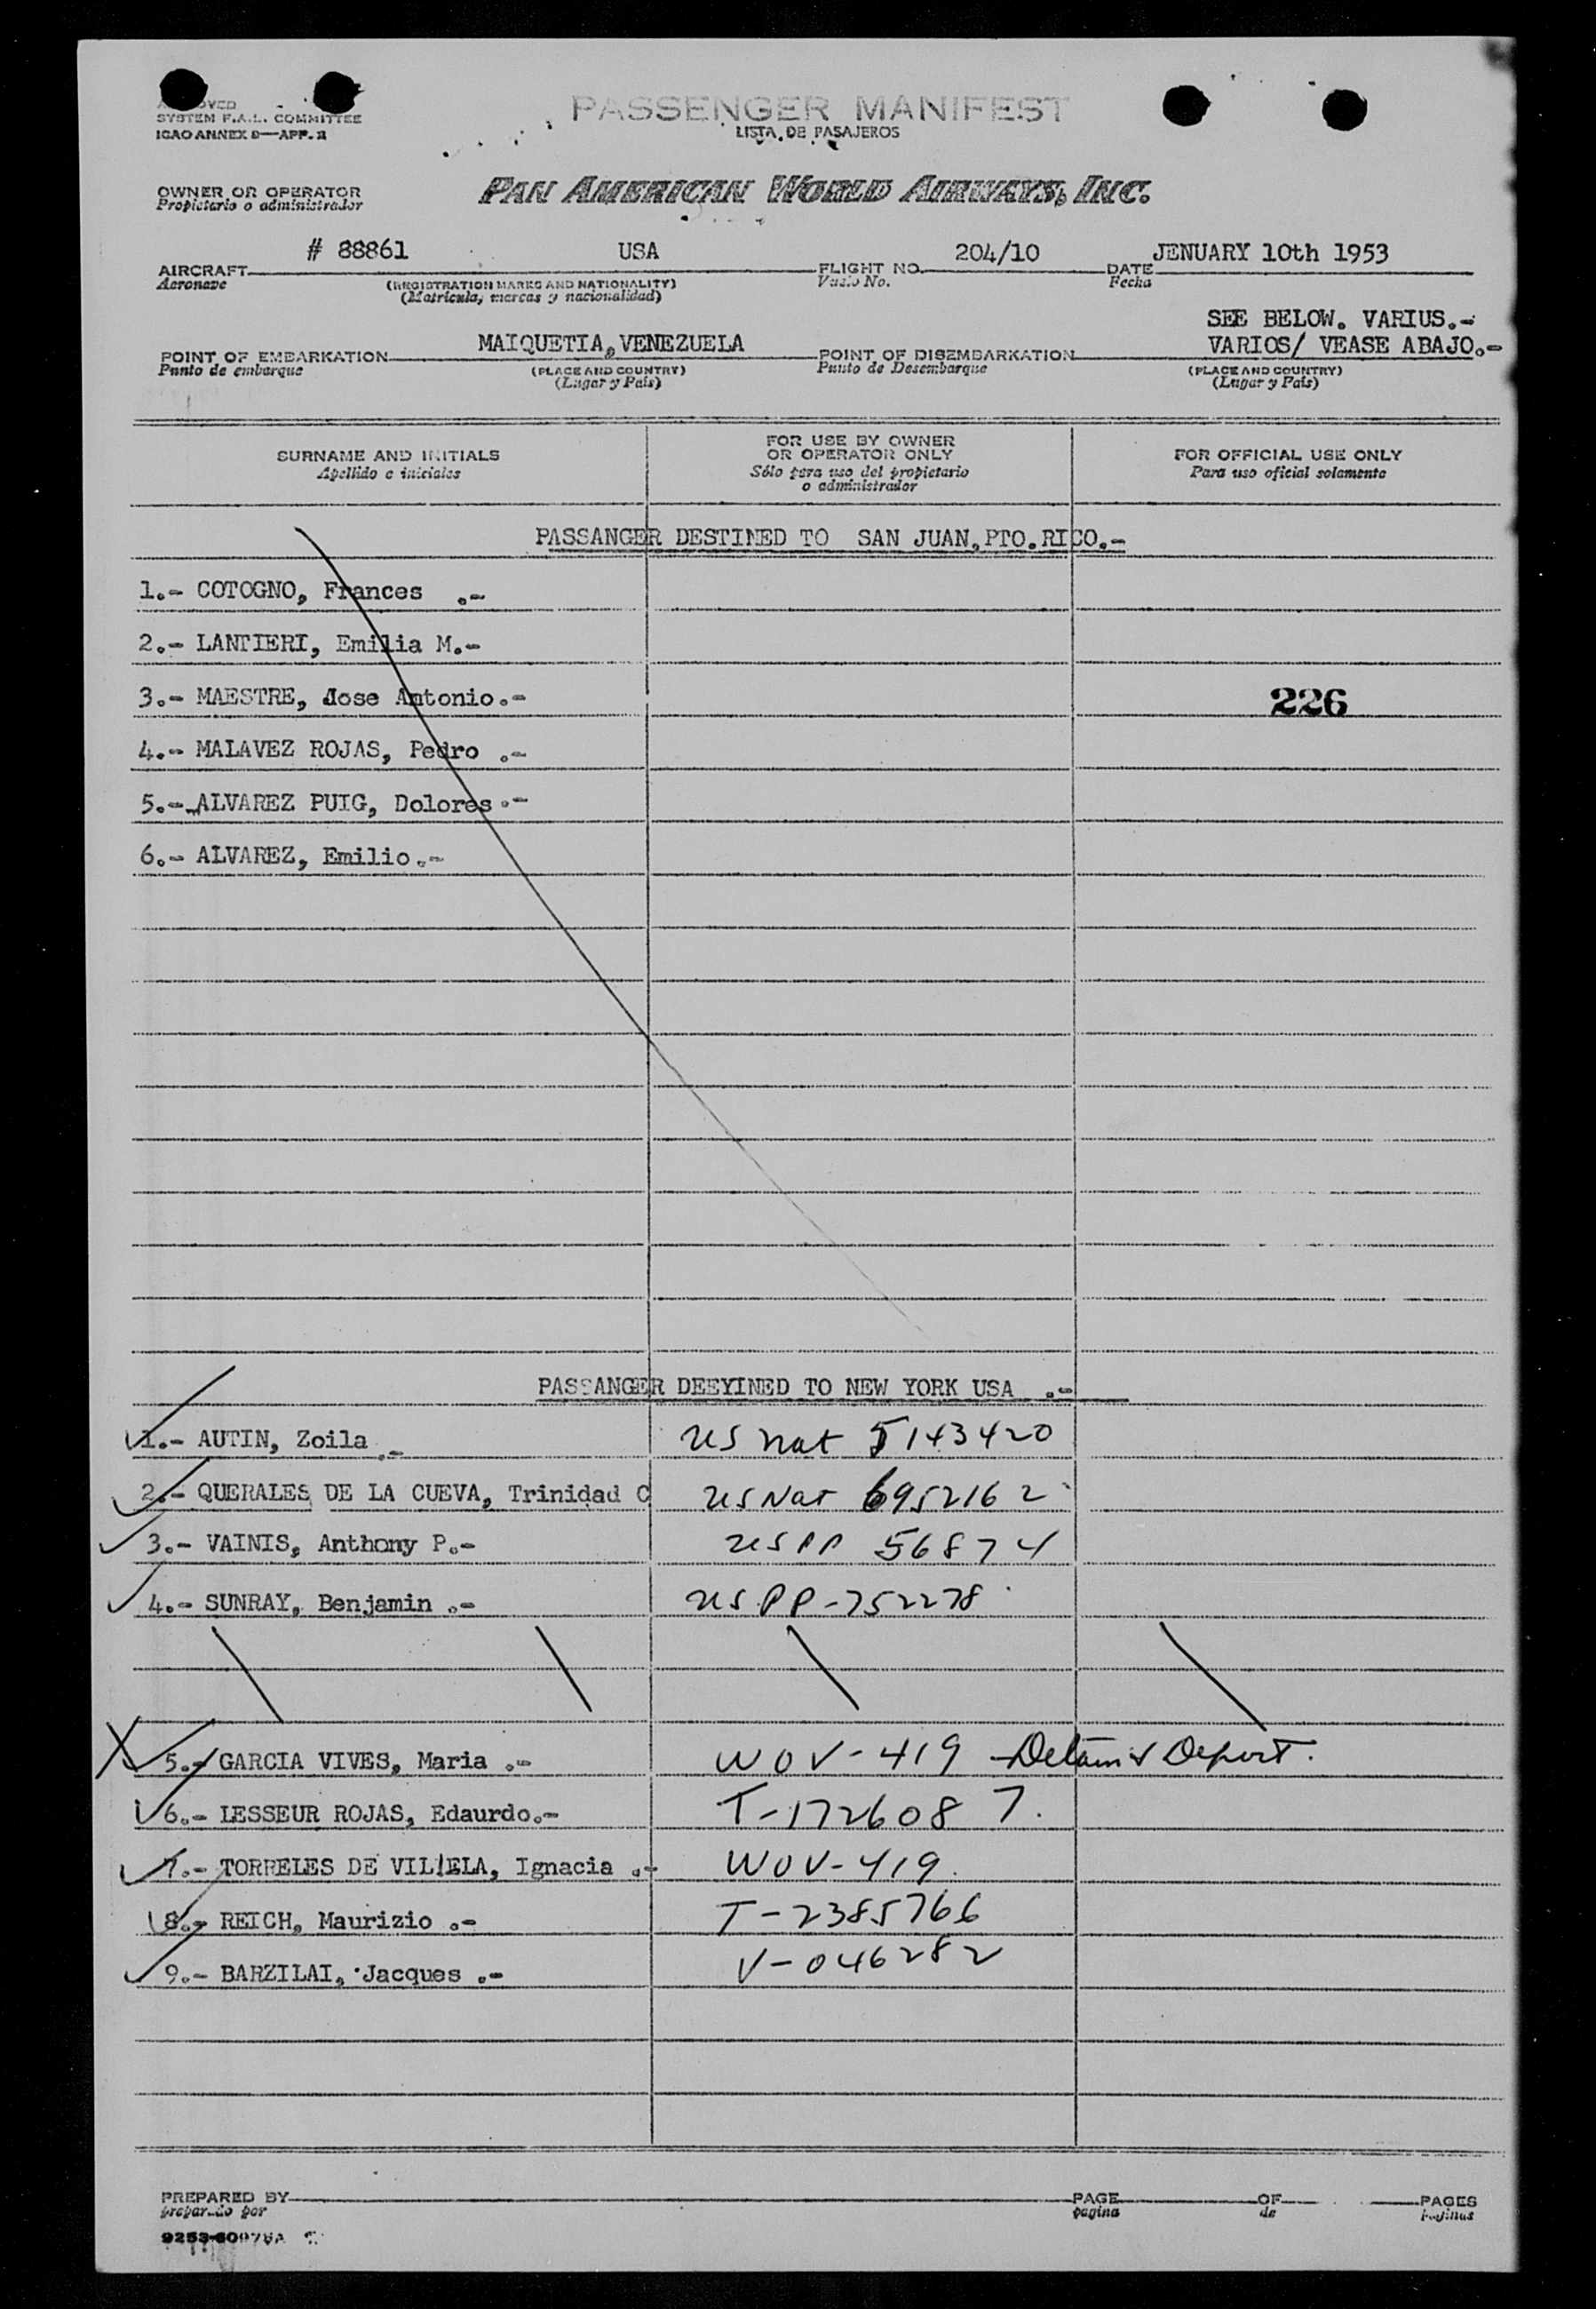 APPROVED
SYSTEM F.A.L. COMMITTEE
ICAO ANNEX 9—APP. 2
PASSENGER MANIFEST
LISTA DE PASAJEROS
OWNER OR OPERATOR
Propietario o administrador
PAN AMERICAN WORLD AIRWAYS, INC.
AIRCRAFT # 88861 USA FLIGHT NO. 204/10 DATE JENUARY 10th 1953
Aeronave (REGISTRATION MARKS AND NATIONALITY) Vuelo No. Fecha
(Matricula, marcas y nacionalidad)
SEE BELOW. VARIUS.-
POINT OF EMBARKATION MAIQUETIA, VENEZUELA POINT OF DISEMBARKATION VARIOS/ VEASE ABAJO.-
Punto de embarque (PLACE AND COUNTRY) Punto de Desembarque (PLACE AND COUNTRY)
(Lugar y País) (Lugar y País)
SURNAME AND INITIALS FOR USE BY OWNER OR OPERATOR ONLY FOR OFFICIAL USE ONLY
Apellido e iniciales Sólo para uso del propietario o administrador Para uso oficial solamente
PASSANGER DESTINED TO SAN JUAN, PTO. RICO.-
1.- COTOGNO, Frances .-
2.- LANTIERI, Emilia M.-
3.- MAESTRE, Jose Antonio.- 226
4.- MALAVEZ ROJAS, Pedro .-
5.- ALVAREZ PUIG, Dolores .-
6.- ALVAREZ, Emilio.-
PASSANGER DESYINED TO NEW YORK USA .-
1.- AUTIN, Zoila .- US Nat 5143420
2.- QUERALES DE LA CUEVA, Trinidad C US Nat 6952162
3.- VAINIS, Anthony P.- US PP 56874
4.- SUNRAY, Benjamin .- US PP-752278
5.- GARCIA VIVES, Maria .- WOV-419 Detain & Deport.
6.- LESSEUR ROJAS, Edaurdo.- T-1726087.
7.- TORRELES DE VILLELA, Ignacia .- WOV-419.
8.- REICH, Maurizio .- T-2385766
9.- BARZILAI, Jacques .- V-046282
PREPARED BY PAGE OF PAGES
preparado por pagina de paginas